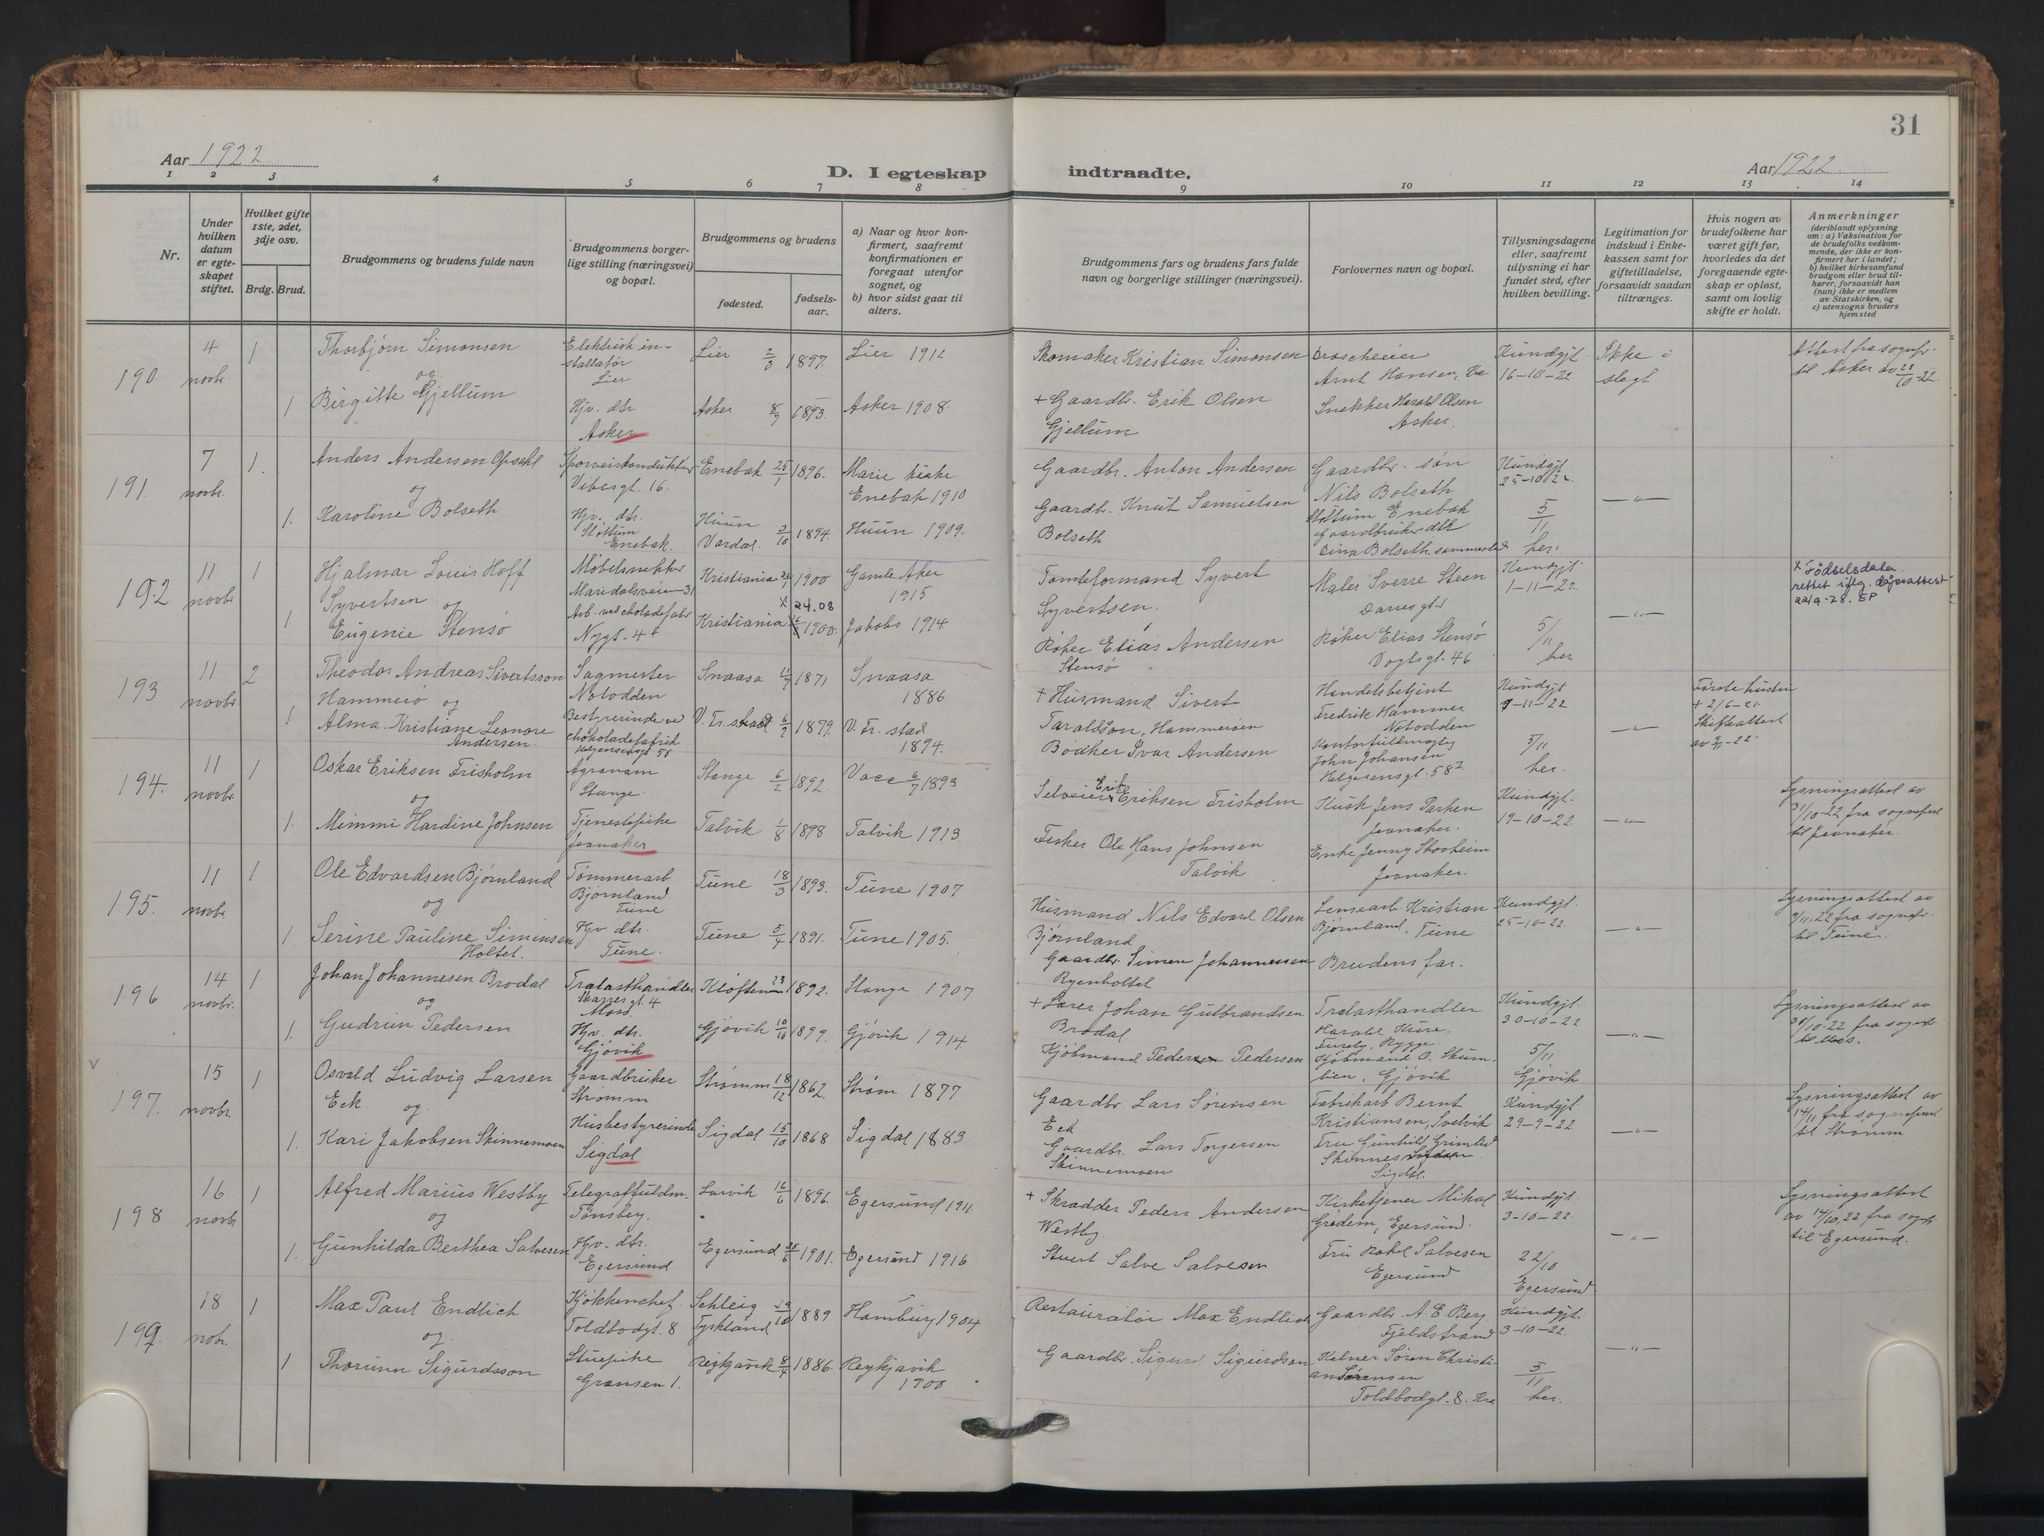 31
Aar 1922
D. I egteskap indtraadte.
Aar 1922
1 2 3 4 5 6 7 8 9 10 11 12 13 14
Nr.
Under hvilken datum er egteskapet stiftet.
Hvilket gifte 1ste, 2det, 3dje osv.
Brdg. Brud.
Brudgommens og brudens fulde navn
Brudgommens borgerlige stilling (næringsvei) og bopæl.
Brudgommens og brudens
fødested.
fødselsaar.
a) Naar og hvor konfirmert, saafremt konfirmationen er foregaat utenfor sognet, og
b) hvor sidst gaat til alters.
Brudgommens fars og brudens fars fulde navn og borgerlige stillinger (næringsvei).
Forlovernes navn og bopæl.
Tillysningsdagene eller, saafremt tillysning ei har fundet sted, efter hvilken bevilling.
Legitimation for indskud i Enkekassen samt for giftetilladelse, forsaavidt saadan tiltrænges.
Hvis nogen av brudefolkene har været gift før, hvorledes da det foregaaende egteskap er opløst, samt om lovlig skifte er holdt.
Anmerkninger (deriblandt oplysning om: a) Vaksination for de brudefolks vedkommende, der ikke er konfirmert her i landet; b) hvilket kirkesamfund brudgom eller brud tilhører, forsaavidt han (hun) ikke er medlem av Statskirken, og c) utensogns bruders hjemsted
190. 4 novbr. 1 Thorbjørn Simonsen Elektrisk installatør Lier Lier 2/3 1897. Lier 1912 Skomaker Kristian Simonsen Arnt Hansen, Kundgjt. 16-10-22 Ikke i slegt. Attest fra sognepr. til Asker
og
1 Birgitte Gjellum Hjv. dtr Asker Asker 8/9 1893. Asker 1908. + Gaardbr. Erik Olsen Gjellum Snekker Harald Olsen Asker.
191. 7 novbr. 1. Anders Andersen Opsahl Sporveiskonduktør Vibesgt. 16. Enebak 25/7 1896. Marie kirke Enebak 1910 Gaardbr. Anton Andersen Gaardbr. søn Nils Bolseth Kundgjt. 25-10-22.
og
1. Karoline Bolseth Hjv. dtr. Enebak. Vardal. 2/10 1894. 1909. Gaardbr. Knut Samuelsen Bolseth Enebak Gaardbruker dtr Bolseth 5/11 her.
192 11 novbr 1 Hjalmar Louis Hoff Syvertsen og Møbelsnekker Maridalsveien 31 Kristiania 1900 Gamle Aker 1915 Tomteformand Syvert Syvertsen. Maler Sverre Steen Darresgt Kundgjt 1-11-22 x Fødselsdata rettet iflg. dåpsattest 22/9-28. EP
1. Eugenie Stensø Arb. ved chokoladefabr Nygt. 46 Kristiania x 24.08 1900. Jakobs 1914 Elias Andersen Stensø Elias Stensø Vogtsgt. 46 5/11 her
193 11 novbr 2 Theodor Andreas Sivertsson Hammerø og Sagmester Notodden Snaasa 1871 Snaasa 1886 + Husmand Sivert Taraldson, Hammerøen Handelsbetjent Fredrik Hammer Notodden Kundgjt -11-22 Første hustru + 2/6-21 Skifteattest
1 Alma Kristiane Leonore Andersen. Bestyrerinde ved chokoladefabrik V. Fr.stad 1879. V. Fr. stad 1894. Bødker Ivar Andersen John Johansen Helgesensgt. 58 5/11 her.
194. 11 novbr 1 Oskar Eriksen Frisholm Agronom Stange. Stange 6/2 1892. 1893 Selveier Erik Eriksen Frisholm Jens Parken Jevnaker. Kundgjt. 19-10-22. Lysningsattest av 31/10-22 fra sognepr til Jevnaker.
og
1. Mimmi Hardine Johnsen Tjenestepike Jevnaker Talvik 1/8 1898 Talvik 1913 Fisker Ole Hans Johnsen Talvik Enke Jenny Skovheim Jevnaker.
195. 11 novbr 1 Ole Edvardsen Bjørnland Tømmerarb Bjørnland Tune Tune 18/3 1893. Tune 1907 Husmand Nils Edvard Olsen Bjørnland Lensearb Kristian Bjørnland, Tune Kundgjt. 25-10-22. Lysningsattest av 9/11.22 fra sognepr. til Tune.
og
1. Serine Pauline Simensen Holtet. Hjv dtr. Tune. Tune 5/4 1891. Tune 1905. Gaardbr. Simen Johannessen Ryenholtet Brudens far.
196 14 novbr. 1 Johan Johannesen Brodal Trælasthandler 4 Moss. Kløften 1892. Stange 1907 + Lærer Johan Gulbrandsen Brodal Trælasthandler Rygge Kundgjt. 30-10-22 Lysningsattest av 30/10-22 fra sognepr. til Moss.
og
1. Gudrun Pedersen Hjv. dtr. Gjøvik Gjøvik 10/10 1899. Gjøvik 1914. Kjøbmand Peder Pedersen Kjøbmand O. Skumlien, Gjøvik 5/11 Gjøvik
197. 15 novbr. 1 Osvald Ludvig Larsen Eek og Gaardbruker Strømm Strømm 18/12 1862. Strøm 1877 Gaardbr. Lars Sørensen Eek Fabrikarb Bernt Kristiansen, Svelvik Kundgjt. 29-9-22 Lysningsattest av 14/11 fra sogneprest til Strømm
1. Kari Jakobsen Skinnemoen Husbestyrerinde Sigdal Sigdal 15/10 1868 Sigdal 1883 Gaardbr. Lars Torgersen Skinnemoen Fru Gunhild Sigdal.
198 16 novbr 1 Alfred Marius Westby Telegraffuldm. Tønsberg. Larvik 16/6 1896. Egersund 1911. + Skrædder Peder Andersen Westby Kirketjener Mikal Grødem, Egersund. Kundgjt. 3-10-22 Lysningsattest av 14/10.22 fra sognpr. til Egersund.
og
1. Gunhilda Berthea Salvesen Hjv. dtr. Egersund Egersund 1901. Egersund 1916 Stuert Salve Salvesen Fru Rakel Salvesen Egersund 22/10 Egersund
199. 18 nobr. 1 Max Paul Endlich Kjøkkenchef. Toldbodgt. 8 Schleiz Tyskland 1889 Hamburg 1904 Restauratør Max Endlich Gaardbr. A. E. Berg Fjeldstrand Kundgjt. 3-10-22.
og.
1 Thorunn Sigurdsson Stuepike Grænsen 1. Reykjavik 8/4 1886. Reykjavik 1900 Gaardbr. Sigurd Sigurdson Kelner Søren Christian Sørensen Toldbodgt. 8. Kra 5/11 her.